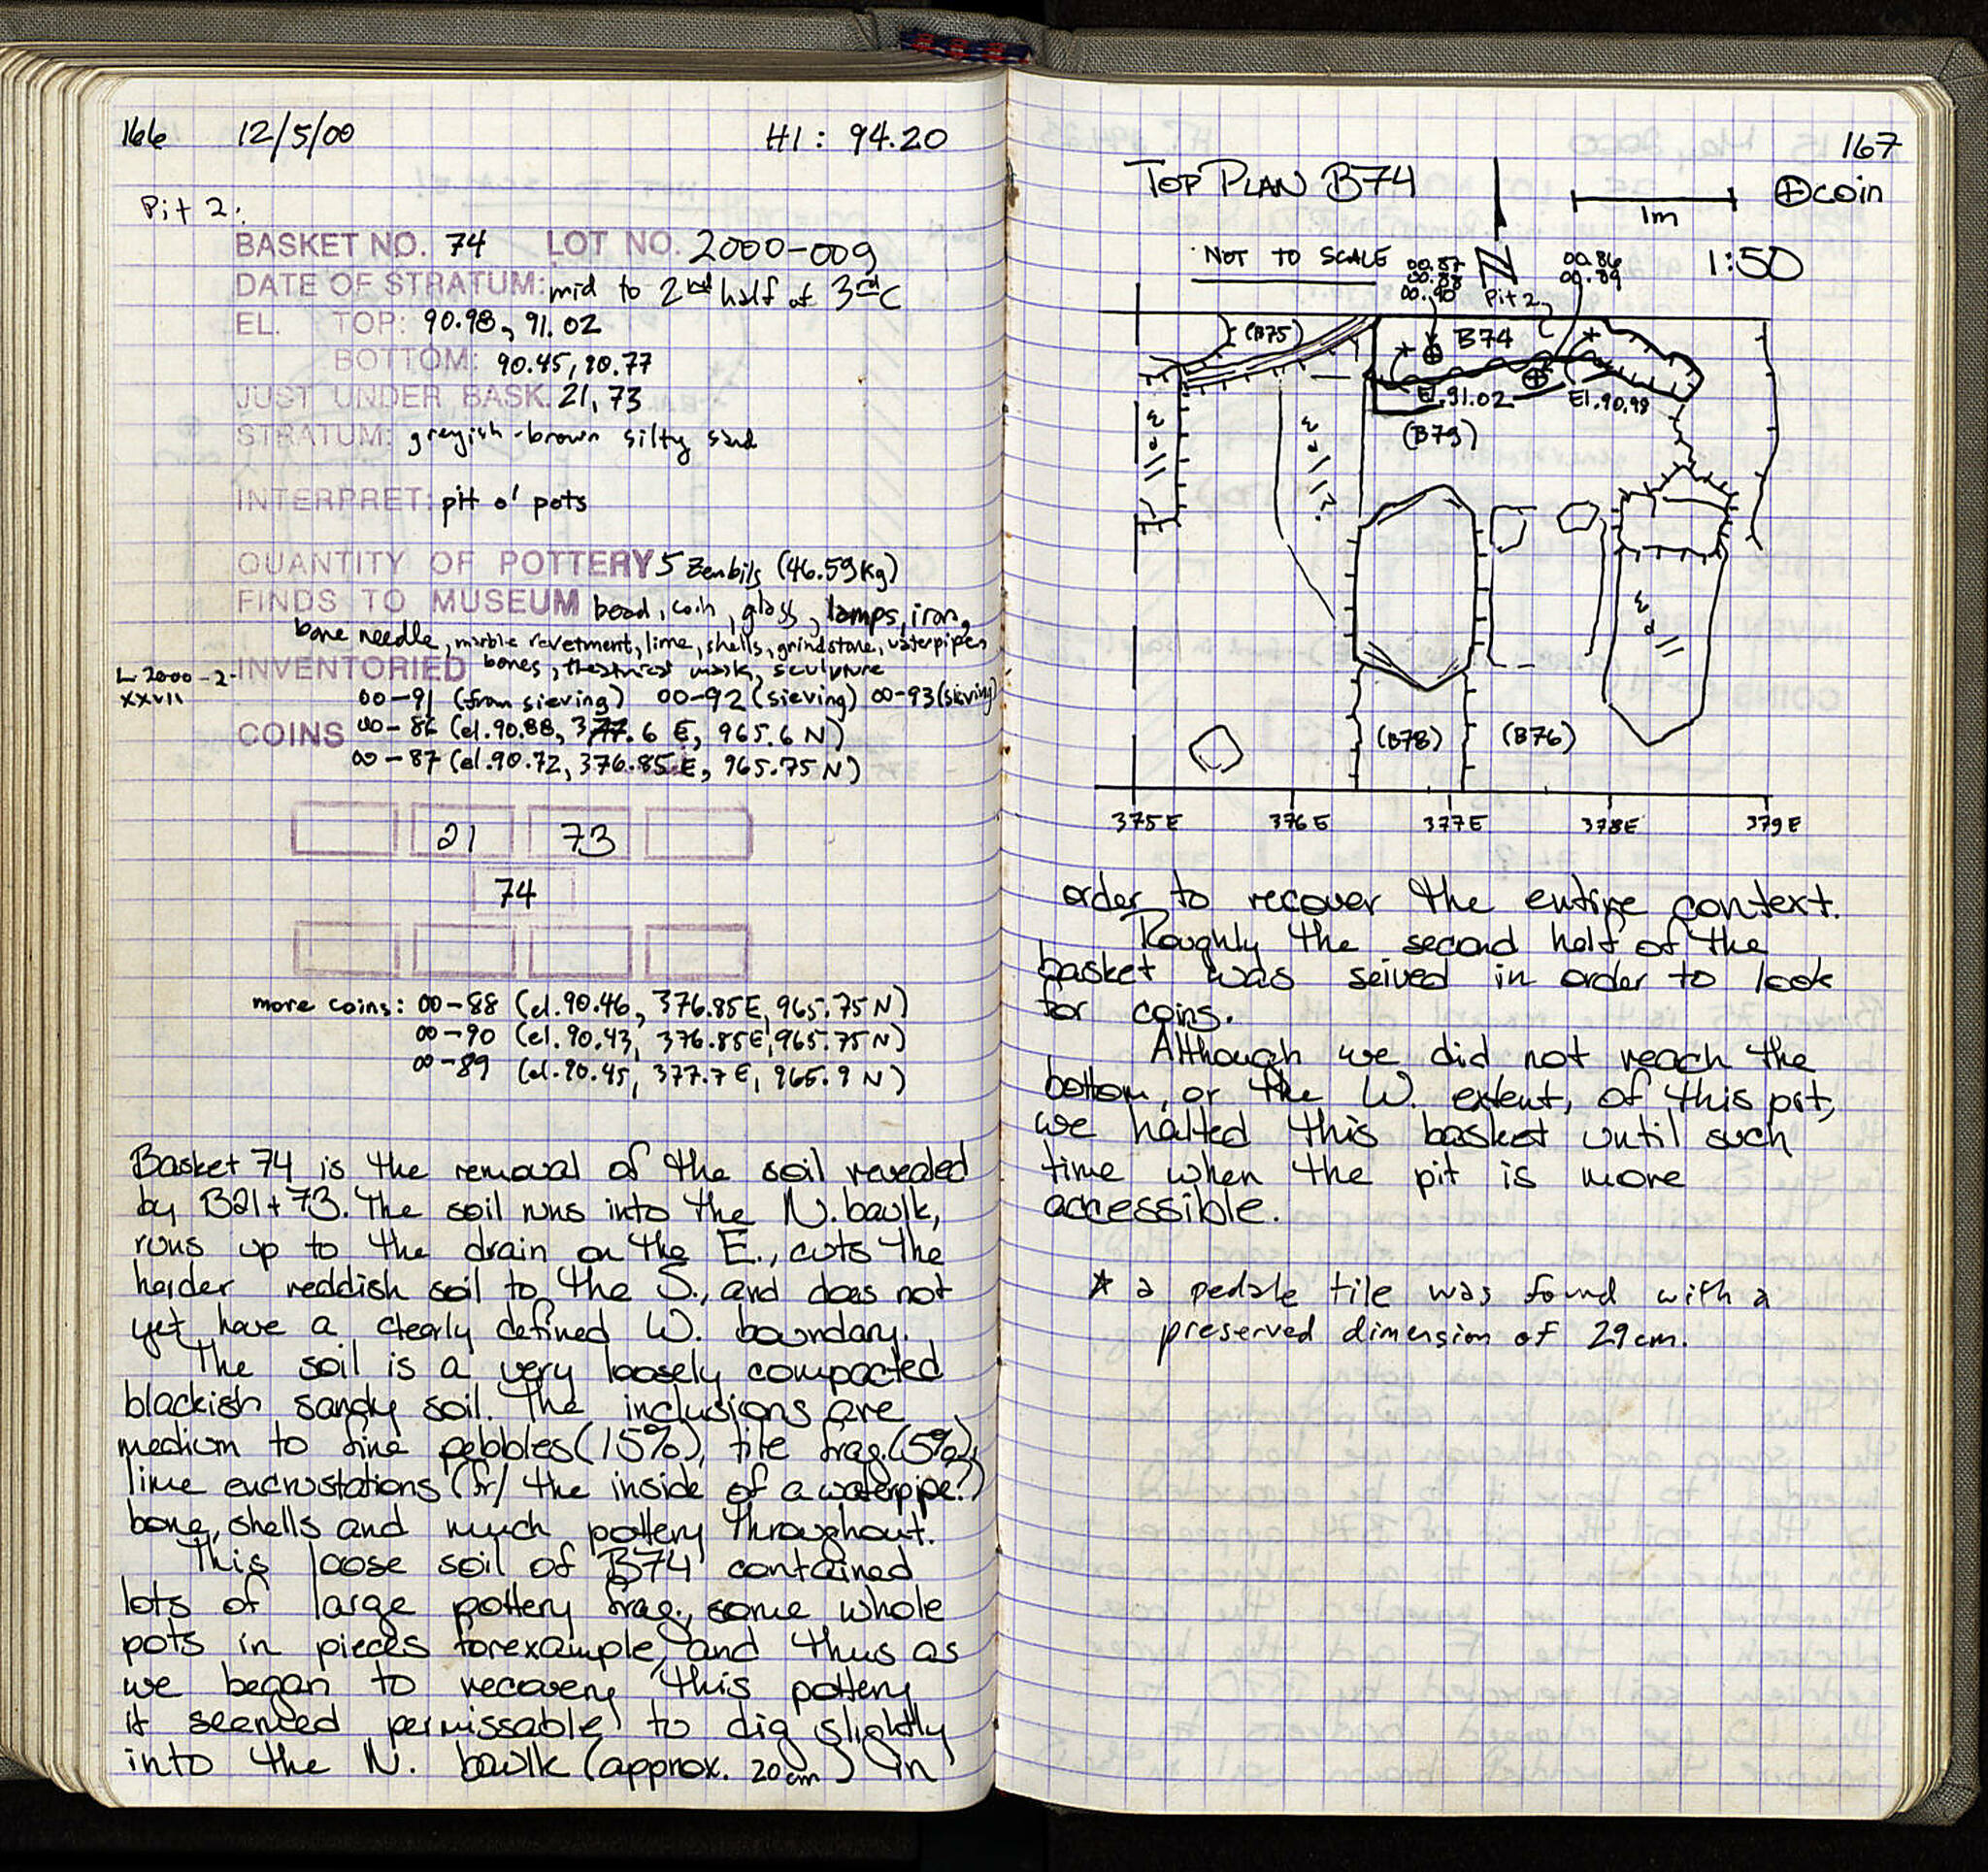 166 12/5/00 HI: 94.20
Pit 2:
BASKET NO. 74 LOT NO. 2000-009
DATE OF STRATUM: mid to 2nd half of 3rd C
EL. TOP: 90.98, 91.02
BOTTOM: 90.45, 90.77
JUST UNDER BASK. 21, 73
STRATUM: greyish-brown silty sand
INTERPRET: pit o' pots
QUANTITY OF POTTERY 5 Zenbils (46.59kg)
FINDS TO MUSEUM bead, coin, glass, lamps, iron,
bone needle, marble revetment, lime, shells, grindstone, waterpipes
L-2000-2-
xxvii
INVENTORIED bones, theatrical mask, sculpture
00-91 (from sieving) 00-92 (sieving) 00-93 (sieving)
COINS 00-86 (el. 90.88, 377.6 E, 965.6 N)
00-87 (el. 90.72, 376.85 E, 965.75 N)
21 73
74
more coins: 00-88 (el. 90.46, 376.85E, 965.75 N)
00-90 (el. 90.43, 376.85E, 965.75 N)
00-89 (el. 90.45, 377.7 E, 965.9 N)
Basket 74 is the removal of the soil revealed
by B21+73. The soil runs into the N. baulk,
runs up to the drain on the E., cuts the
harder reddish soil to the S., and does not
yet have a clearly defined W. boundary.
The soil is a very loosely compacted
blackish sandy soil. The inclusions are
medium to fine pebbles (15%), tile frag. (5%),
lime encrustations (fr/ the inside of a waterpipe?)
bone, shells and much pottery throughout.
This loose soil of B74 contained
lots of large pottery frag., some whole
pots in pieces forexample, and thus as
we began to recovery this pottery
it seemed permissable to dig slightly
into the N. baulk (approx. 20cm) in
167
TOP PLAN B74
1m
⊕coin
NOT TO SCALE
N
1:50
00.87
00.88
00.90
00.86
00.89
Pit 2
(B75)
* ⊕ B74 *
El. 91.02 El. 90.98
(B79)
(B78) (B76)
375E 376E 377E 378E 379E
order to recover the entire context.
Roughly the second half of the
basket was seived in order to look
for coins.
Although we did not reach the
bottom, or the W. extent, of this pit,
we halted this basket until such
time when the pit is more
accessible.
* a pedale tile was found with a
preserved dimension of 29cm.